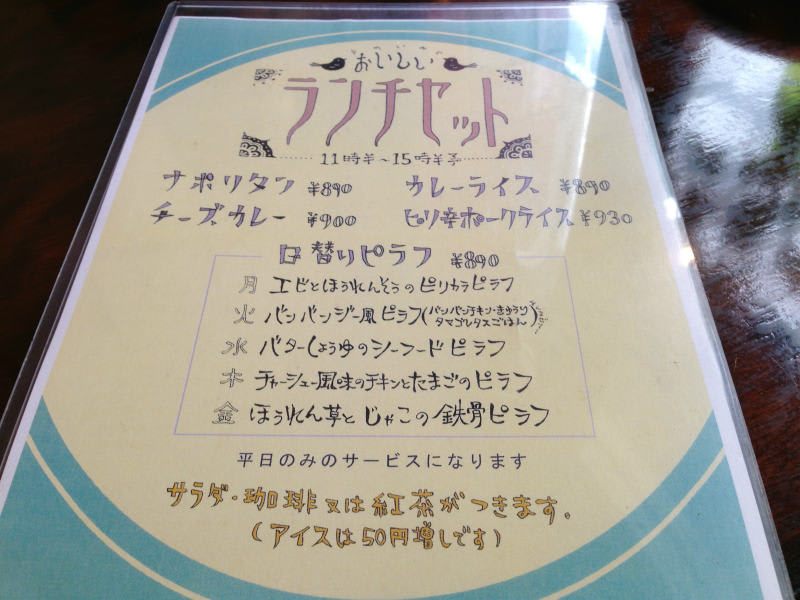 おいしい
ランチセット
11時半~15時半
ナポリタン ¥890 カレーライス ¥890
チーズカレー ¥900 ピリ辛ポークライス ¥930
日替りピラフ ¥890
月 エビとほうれんそうのピリカラピラフ
火 バンバンジー風ピラフ(バンバンチキン・きゅうり
タマゴレタスごはん)
水 バターしょうゆのシーフードピラフ
木 チャーシュー風味のチキンとたまごのピラフ
金 ほうれん草とじゃこの鉄骨ピラフ
平日のみのサービスになります
サラダ・珈琲又は紅茶がつきます。
(アイスは50円増しです)